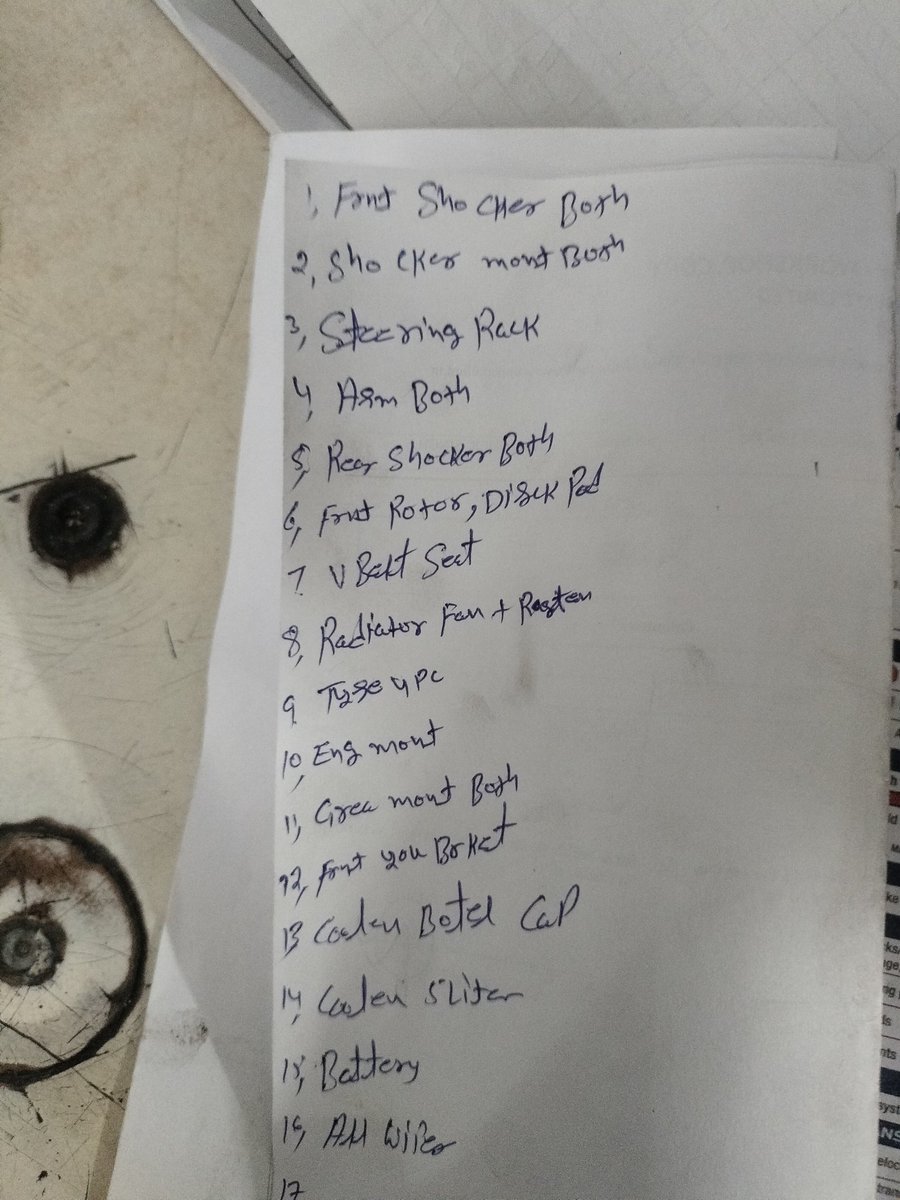 1, Frnt Shocker Both
2, Shocker mont Both
3, Steering Rack
4, Arm Both
5, Rear Shocker Both
6, Frnt Rotor, Disck Pad
7 V Belt Seat
8, Radiator Fan +
9 Tyre 4 PC
10, Eng mont
11, Grea mont Both
12, Frnt you Brket
13 Coolen Botel Cap
14, Coolen 5 Liter
15, Battery
16, All Wiper
17